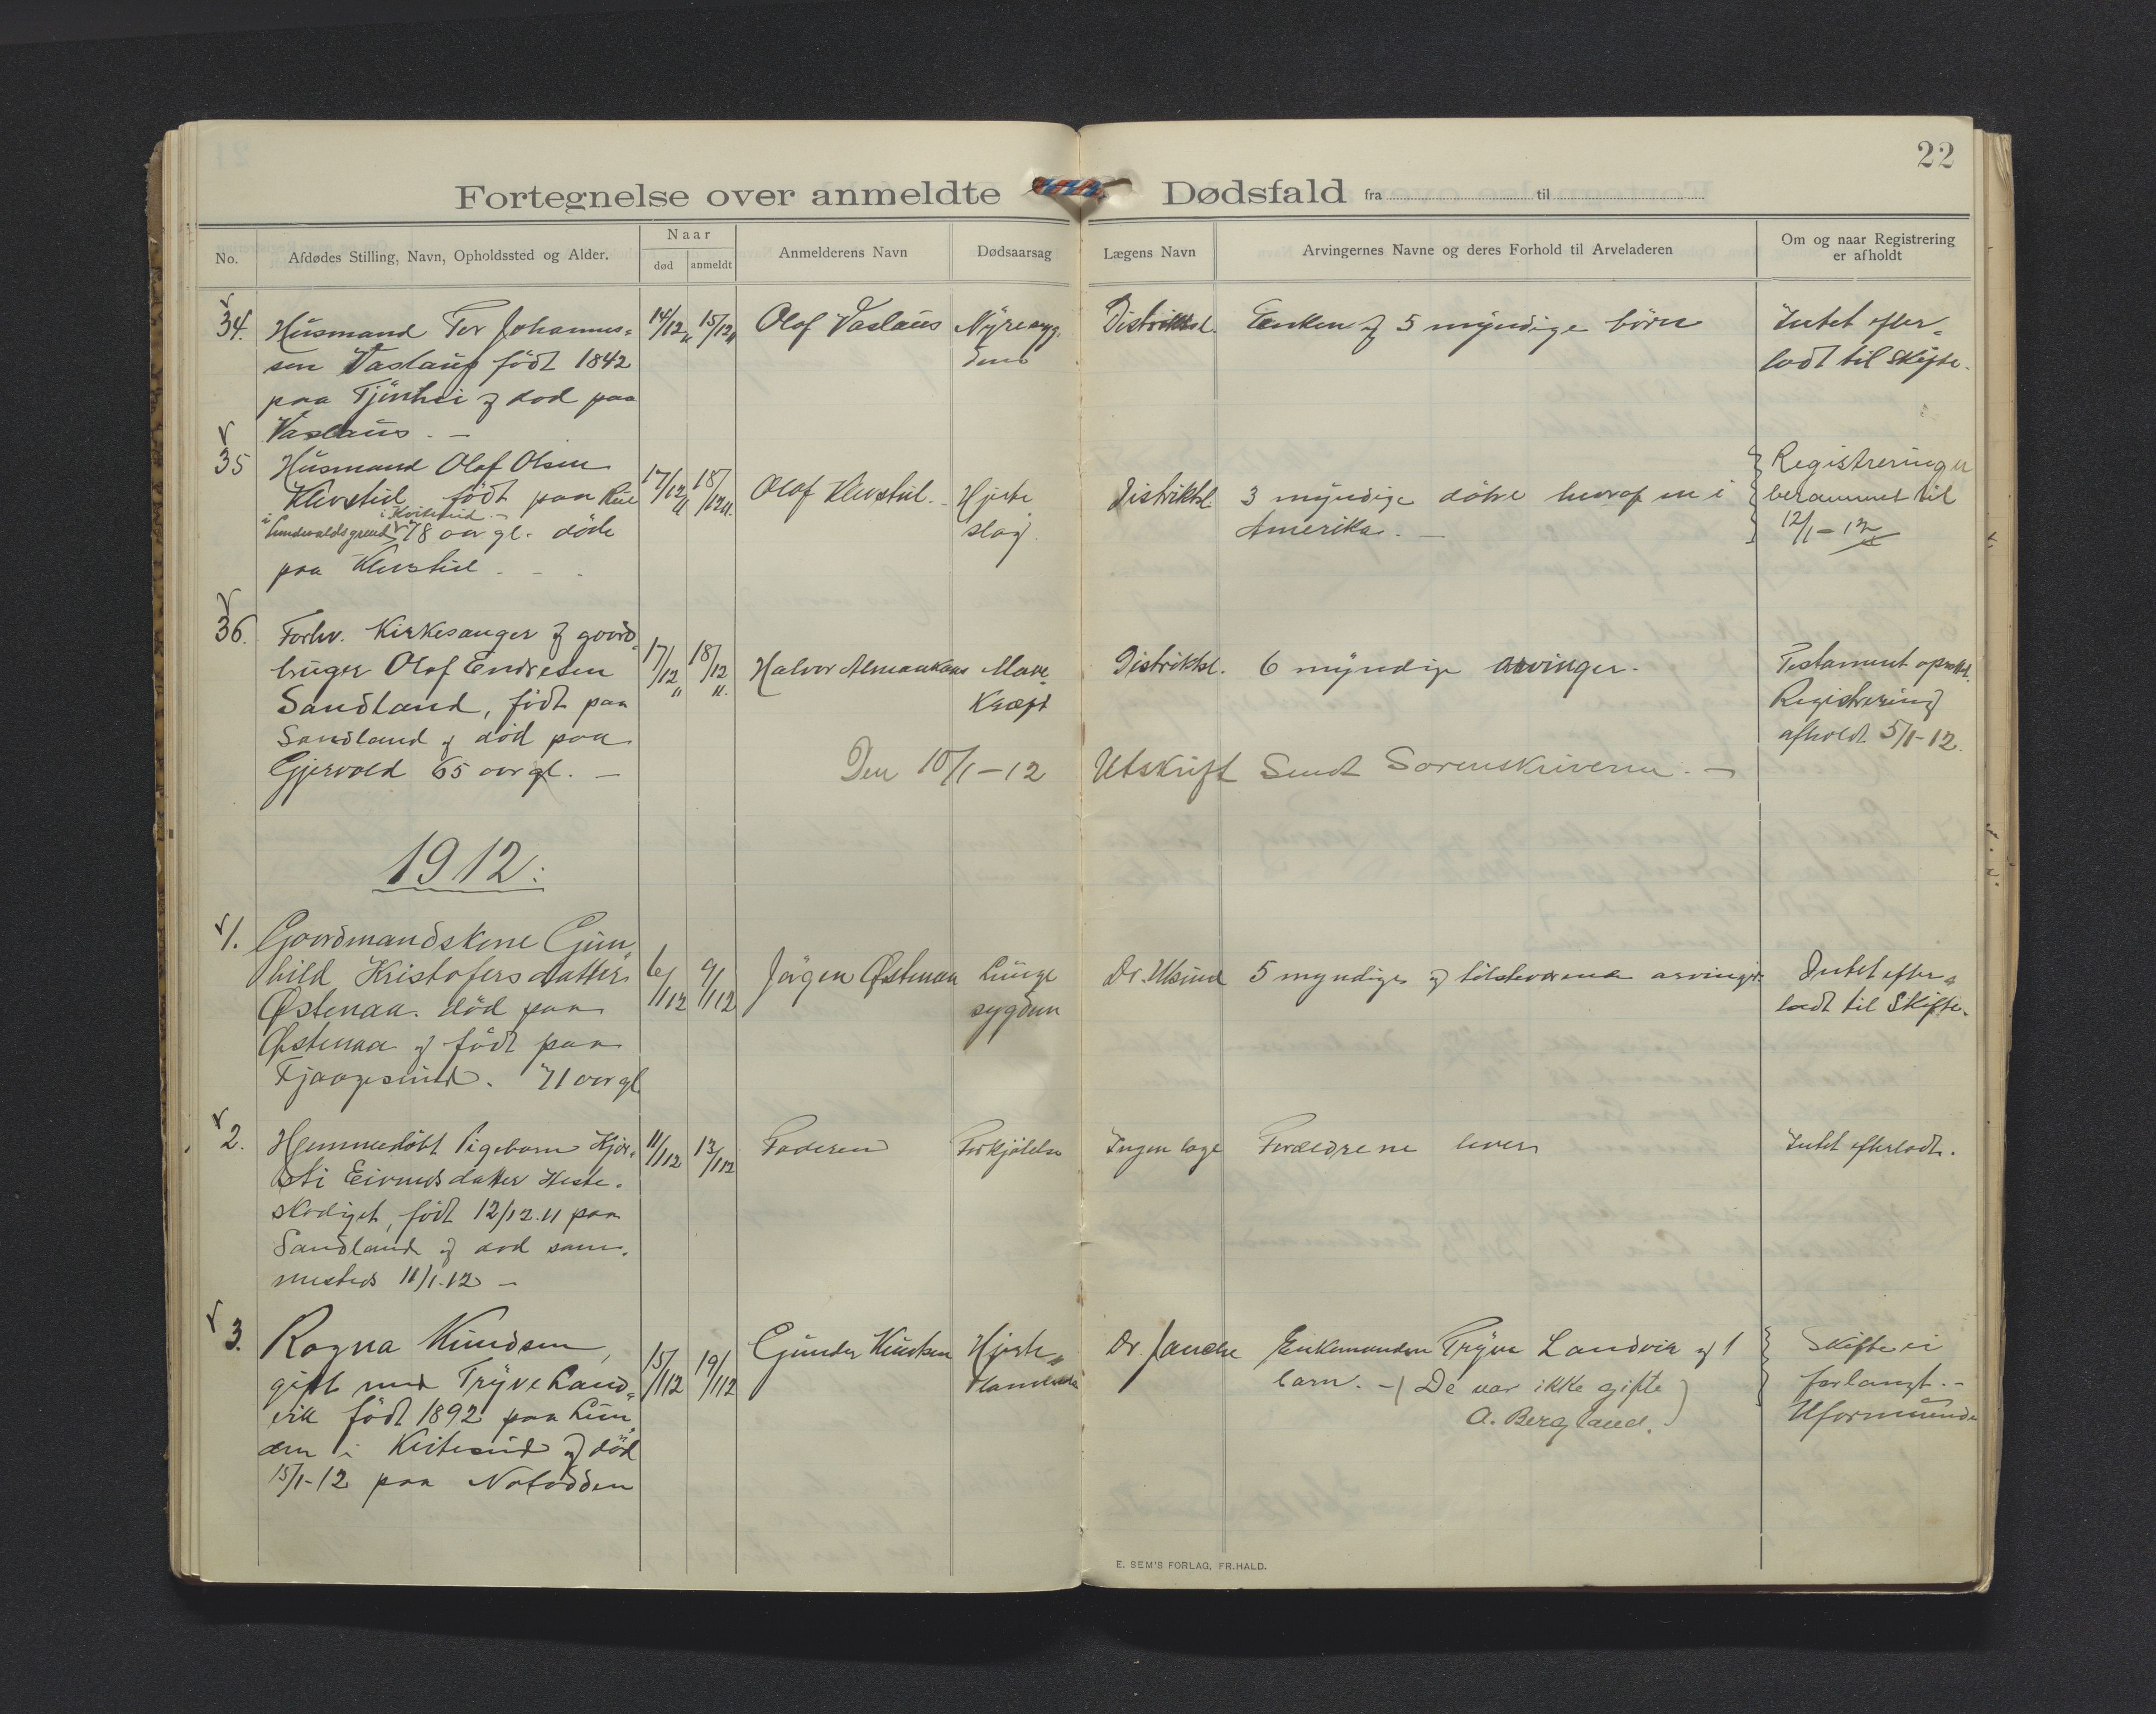 22
Fortegnelse over anmeldte Dødsfald fra til
No.
Afdødes Stilling, Navn, Opholdssted og Alder.
Naar
død
anmeldt
Anmelderens Navn
Dødsaarsag
Lægens Navn
Arvingernes Navne og deres Forhold til Arveladeren
Om og naar Registrering
er afholdt
34. Husmand Per Johannes-
sen Vaslaus födt 1842
paa Tjönhei & död paa
Vaslaus. -
14/12 11
15/12 11
Olof Vaslaus
Nyresyg-
dom
Distriktsl.
Enken & 5 myndige börn
Intet efter-
ladt til Skifte.
35 Husmand Olaf Olsen
Klevstul födt paa Rui
i Kviteseid -
78 aar gl. döde
paa Klevstul - - .
17/12 11
18/12 11.
Olaf Klevstul. -
Hjerte
slag.
Distriktsl.
3 myndige dötre hvoraf en i
Amerika. -
Registreringen
berammet til
12/1 - 12
36. Forhv. Kirkesanger & gaard-
bruger Olaf Endresen
Sandland, födt paa
Sandland & död paa
Gjervold 65 aar gl. -
17/12 11
18/12 11.
Halvor
Mave
Kræft
Distriktsl.
6 myndige arvinger.
Testament oprettet.
Registrering
afholdt 5/1-12.
Den 10/1-12 Utskrift Sendt Sorenskriveren. -
1912:
1. Gaardmandskone Gun-
hild Kristofersdatter
Østenaa. död paa
Østenaa & födt paa
Fjaagesund. 71 aar gl
6/1 12
9/1 12
Jörgen Østenaa
Lunge
sygdom
5 myndige & tilstedværende arvinger
Intet efter-
ladt til Skifte.
2. Hjemmedöbt Pigebarn Kjer-
sti Eivindsdatter Heste-
skodiget, födt 12/12.11 paa
Sandland & död sam-
mesteds 11/1.12 -
11/1 12
13/1 12
Faderen
Forkjölelse
Ingen læge
Forældrene lever
Intet efterladt.
3. Ragna Knudsen,
gift med Trÿve Land-
vik födt 1892 paa Lun-
den i Kviteseid & död
15/1-12 paa Notodden
15/1 12
19/1 12
Gunder Knudsen
Hjerte-
Dr. Janche
Enkemanden Trÿve Landvik & 1
barn. - (De var ikke gifte
A. Bergland.)
Skifte ei
forlangt. -
Uformuende
E. SEM'S FORLAG, FR.HALD.